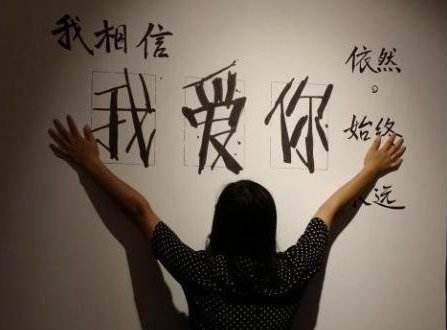 我相信
我爱你
依然
。
始终
远